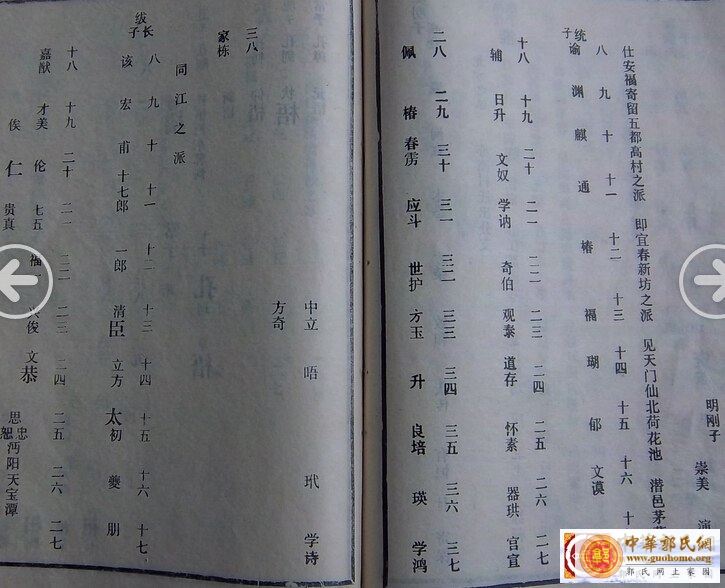 明刚子 崇美
仕安福寄留五都高村之派 即宜春新坊之派 见天门仙北荷花池 潜邑茅
八 九 十 十一 十二 十三 十四 十五 十六
统谕子 渊 麒 通 椿 福 瑚 郁 文谟
十八 十九 二十 二一 二二 二三 二四 二五 二六 二七
辅 日升 文奴 学讷 奇伯 观泰 道存 怀素 器珙 宫宜
二八 二九 三十 三一 三二 三三 三四 三五 三六 三七
佩 椿 春雳 应斗 世护 方玉 升 良培 瑛 学鸿
中立 唔 玳 学诗
方奇
三八
家栋
同江之派
八 九 十 十一 十二 十三 十四 十五 十六 十七
绂长子 该 宏 甫 十七郎 一郎 清臣 立方 太初 夔 朋
十八 十九 二十 二一 二二 二三 二四 二五 二六 二七
嘉猷 才美 伦 七五 福一 兴俊 文恭 思忠
俟 仁 贵真 恕 沔阳天宝潭
中華郭氏網
www.guohome.org
郭氏网上家园